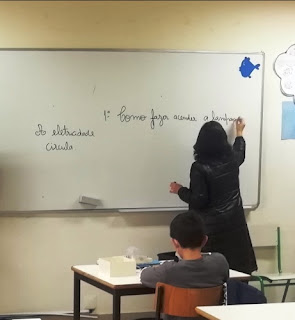 1º Como fazer acender a lampada
A eletricidade
circula